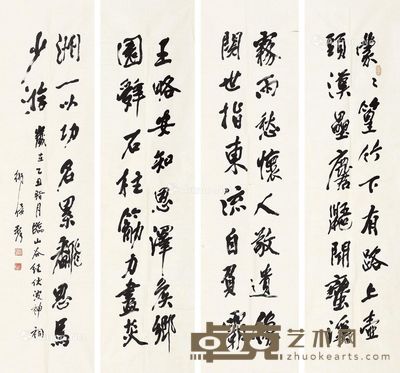 蒙々篁竹下有路上壺
頭漢壘麏鼯鬪蠻溪
霧雨愁懷人敬遺像
閱世指東流自負霸
王略安知恩澤侯鄉
園辭石柱筋力盡炎
洲一以功名累翻思馬
少游
歲在乙丑月臨山谷經伏波神祠
卓克艺术网
zhuokearts.com